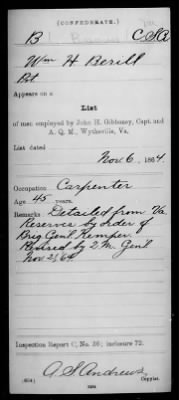 (CONFEDERATE.)
B CSA
Wm H Berill
Pvt.
Appears on a
List
of men employed by John H. Gibboney, Capt. and
A. Q. M., Wytheville, Va.
List dated
Nov 6, 1864.
Occupation Carpenter
Age 45 years.
Remarks Detailed from Va
Reserves by order of
Brig Genl Kemper.
Revised by 2 M. Genl
Nov 2/64
Inspection Report C, No. 36; inclosure 72.
A S Andrews
Copyist.